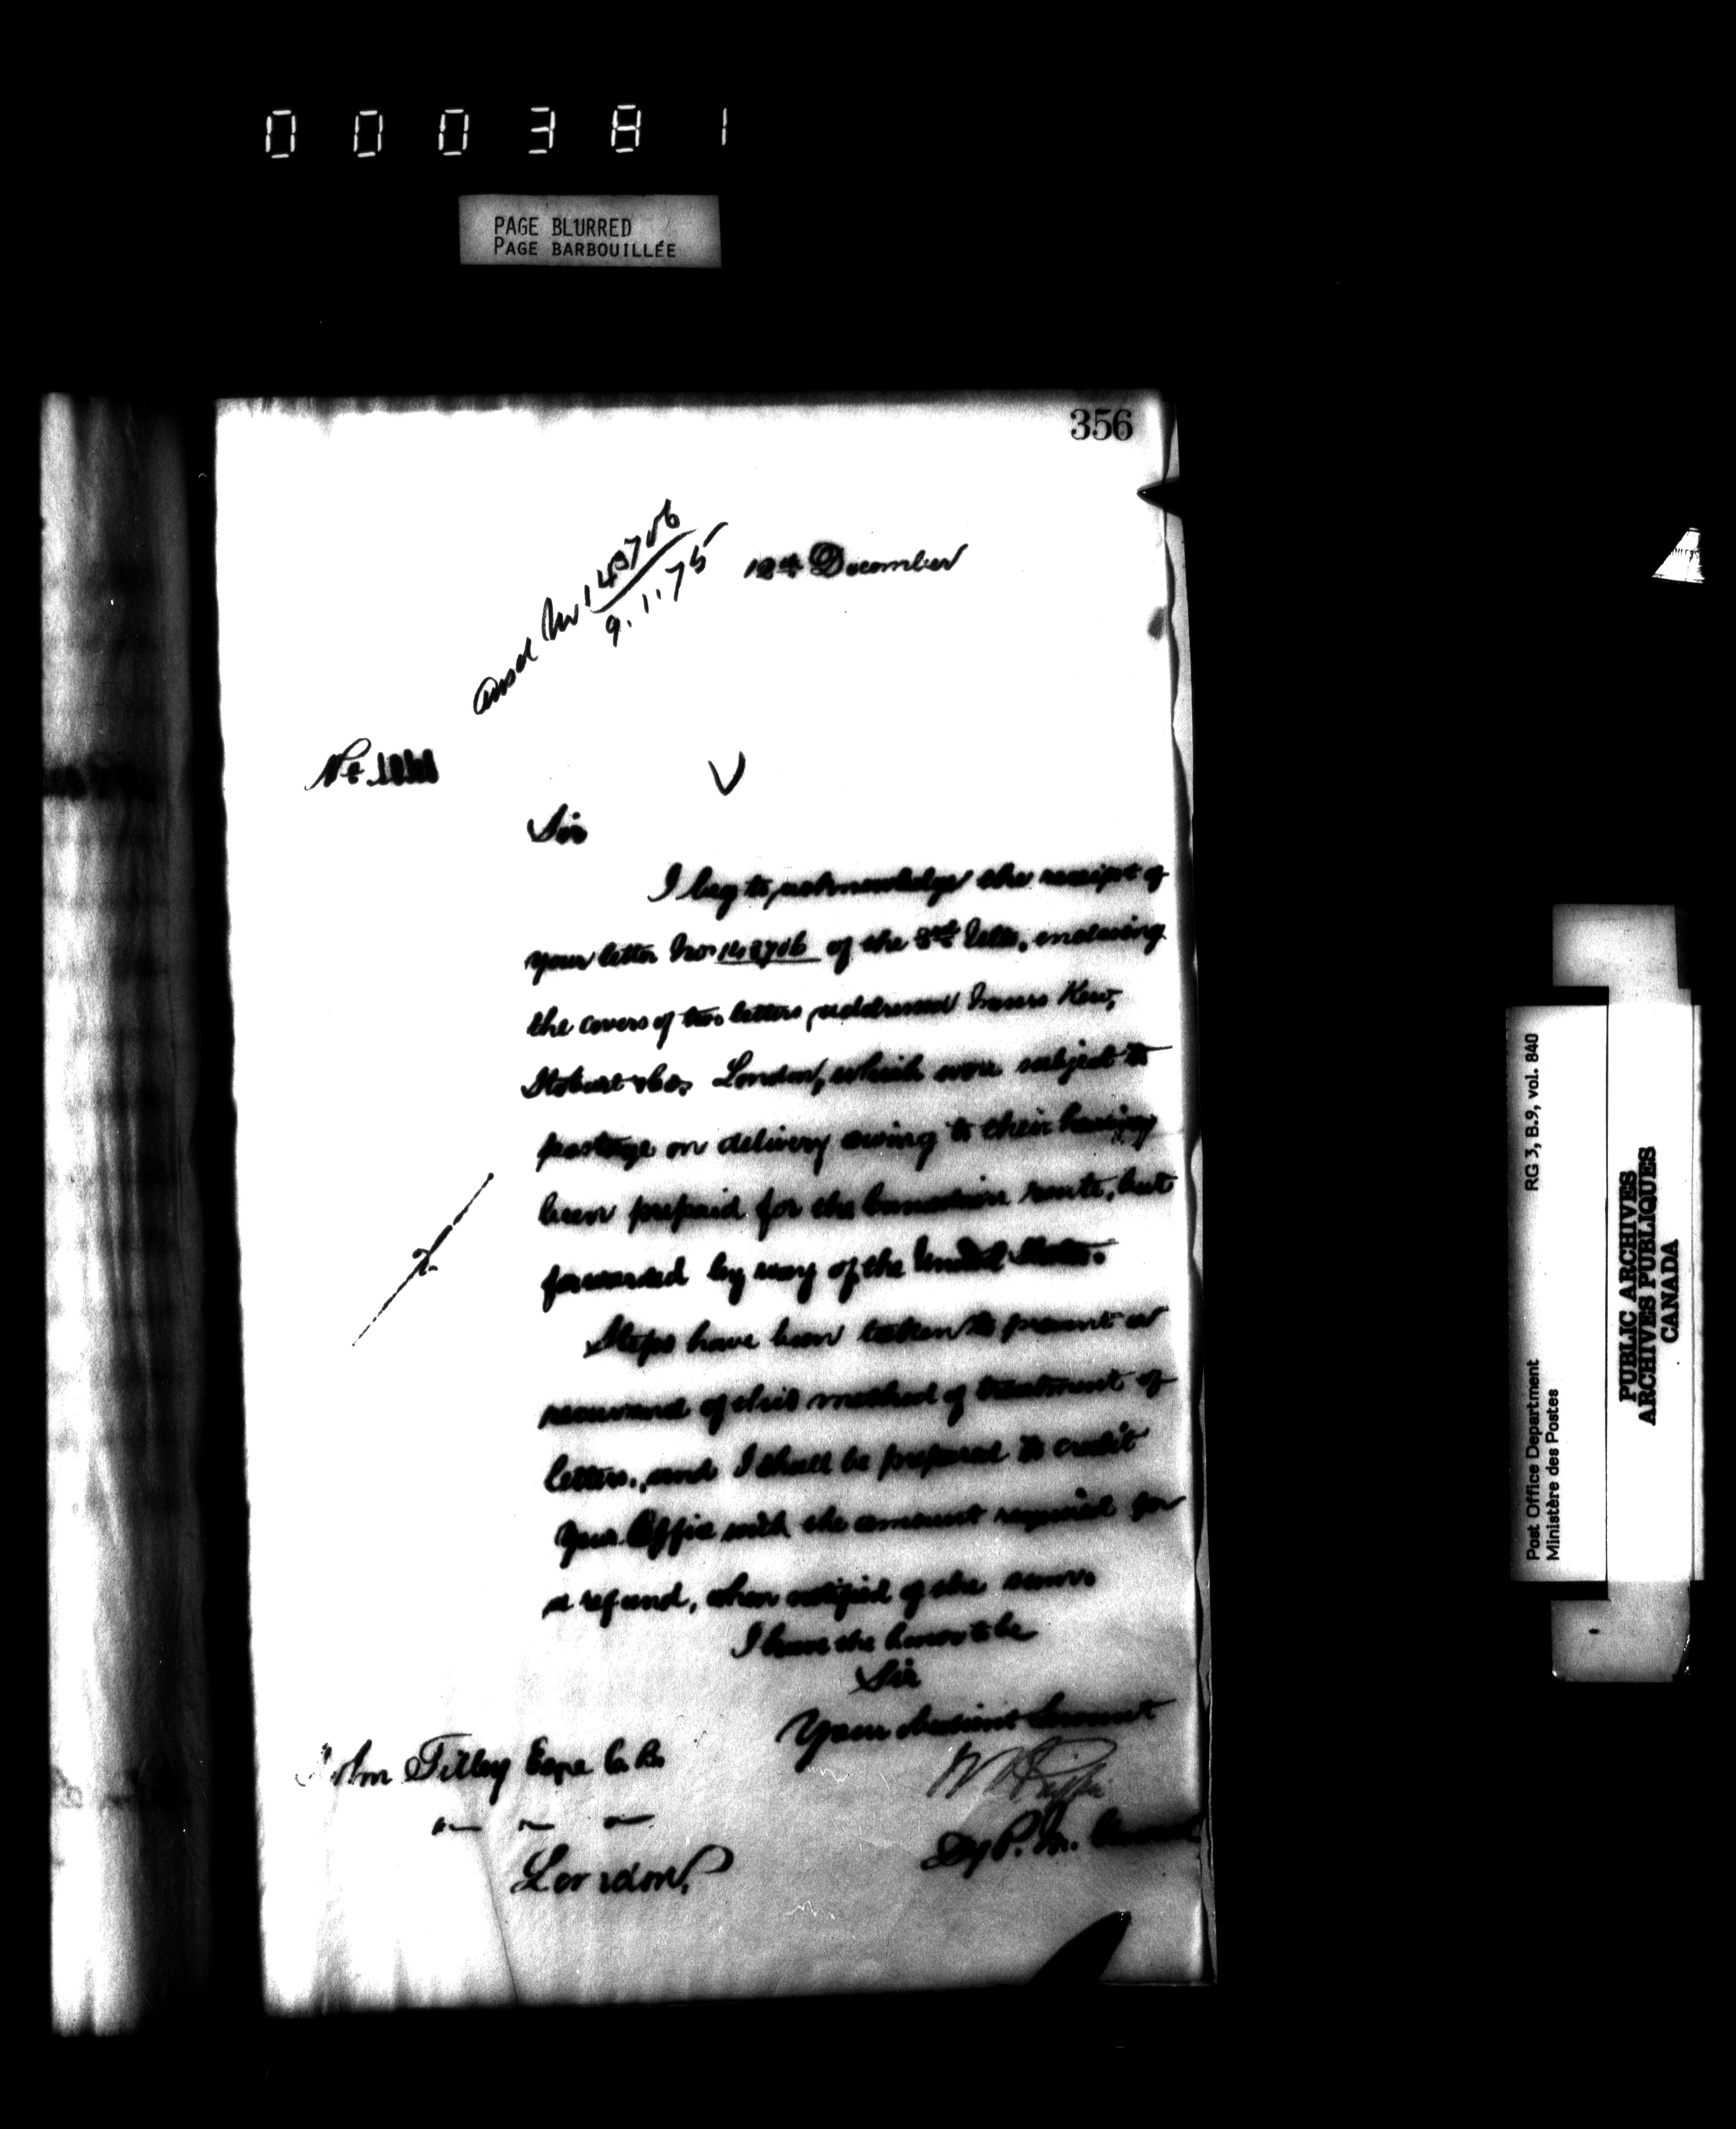 000381
PAGE BLURRED
PAGE BARBOUILLÉE
356
ansd No 143706
9.1.75
12th December
No.
Sir
I beg to acknowledge the receipt of
your letter No. 143706 of the 3rd Ulto., enclosing
the covers of two letters, addressed Messrs Kew,
Stobart & Co. London, which were subject to
postage on delivery owing to their having
been prepaid for the Canadian route, but
forwarded by way of the United States.
Steps have been taken to prevent a
recurrence of this method of treatment of
letters, and I shall be prepared to credit
your Office with the amount required for
a refund, when notified of the same.
I have the honor to be
Sir
Your obedient Servant
W H Griffin
Dy P. M. General
John Tilley Esqre C. B.
London.
RG 3, B.9, vol. 840
Post Office Department
Ministère des Postes
PUBLIC ARCHIVES
ARCHIVES PUBLIQUES
CANADA